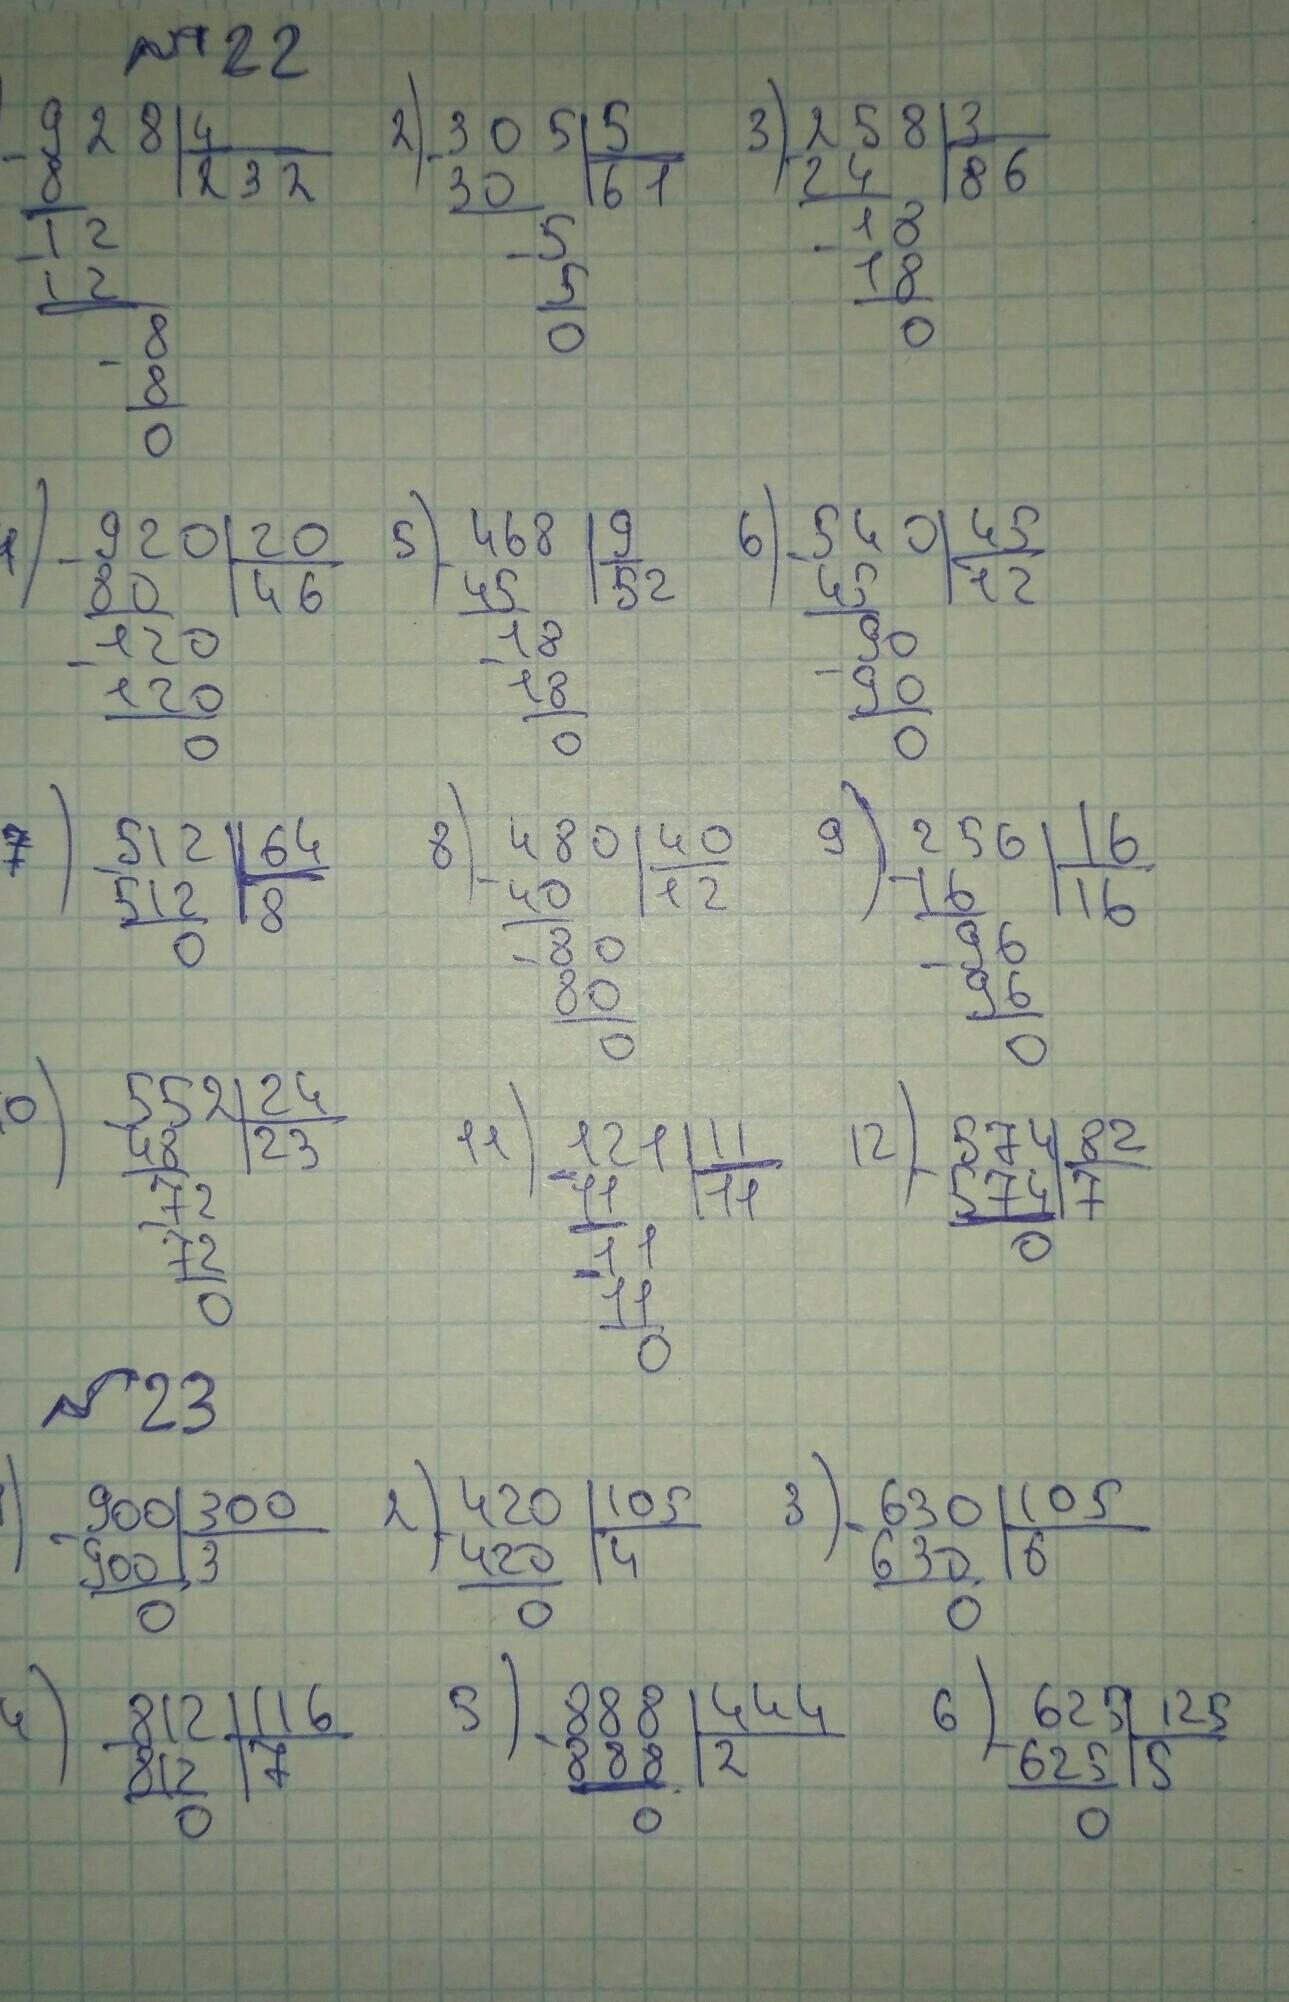 № 22
) - 928 | 4 2) - 305 | 5 3) - 258 | 3
8 | 232 30 | 61 24 | 86
- 12 - 5 - 18
12 5 18
- 8 0 0
8
0
4) - 920 | 20 5) - 468 | 9 6) - 540 | 45
80 | 46 45 | 52 45 | 12
- 120 - 18 - 90
120 18 90
0 0 0
7) - 512 | 64 8) - 480 | 40 9) - 256 | 16
512 | 8 40 | 12 16 | 16
0 - 80 - 96
80 96
0 0
0) - 552 | 24 11) - 121 | 11 12) - 574 | 82
48 | 23 11 | 11 574 | 7
- 72 - 11 0
72 11
0 0
№ 23
1) - 900 | 300 2) - 420 | 105 3) - 630 | 105
900 | 3 420 | 4 630 | 6
0 0 0
4) - 812 | 116 5) - 888 | 444 6) - 625 | 125
812 | 7 888 | 2 625 | 5
0 0 0